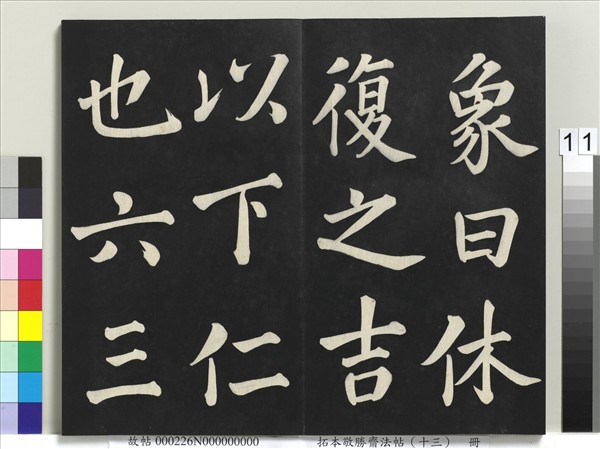 象曰休
復之吉
以下仁
也六三
11
故帖 000226N000000000 拓本敬勝齋法帖（十三） 冊